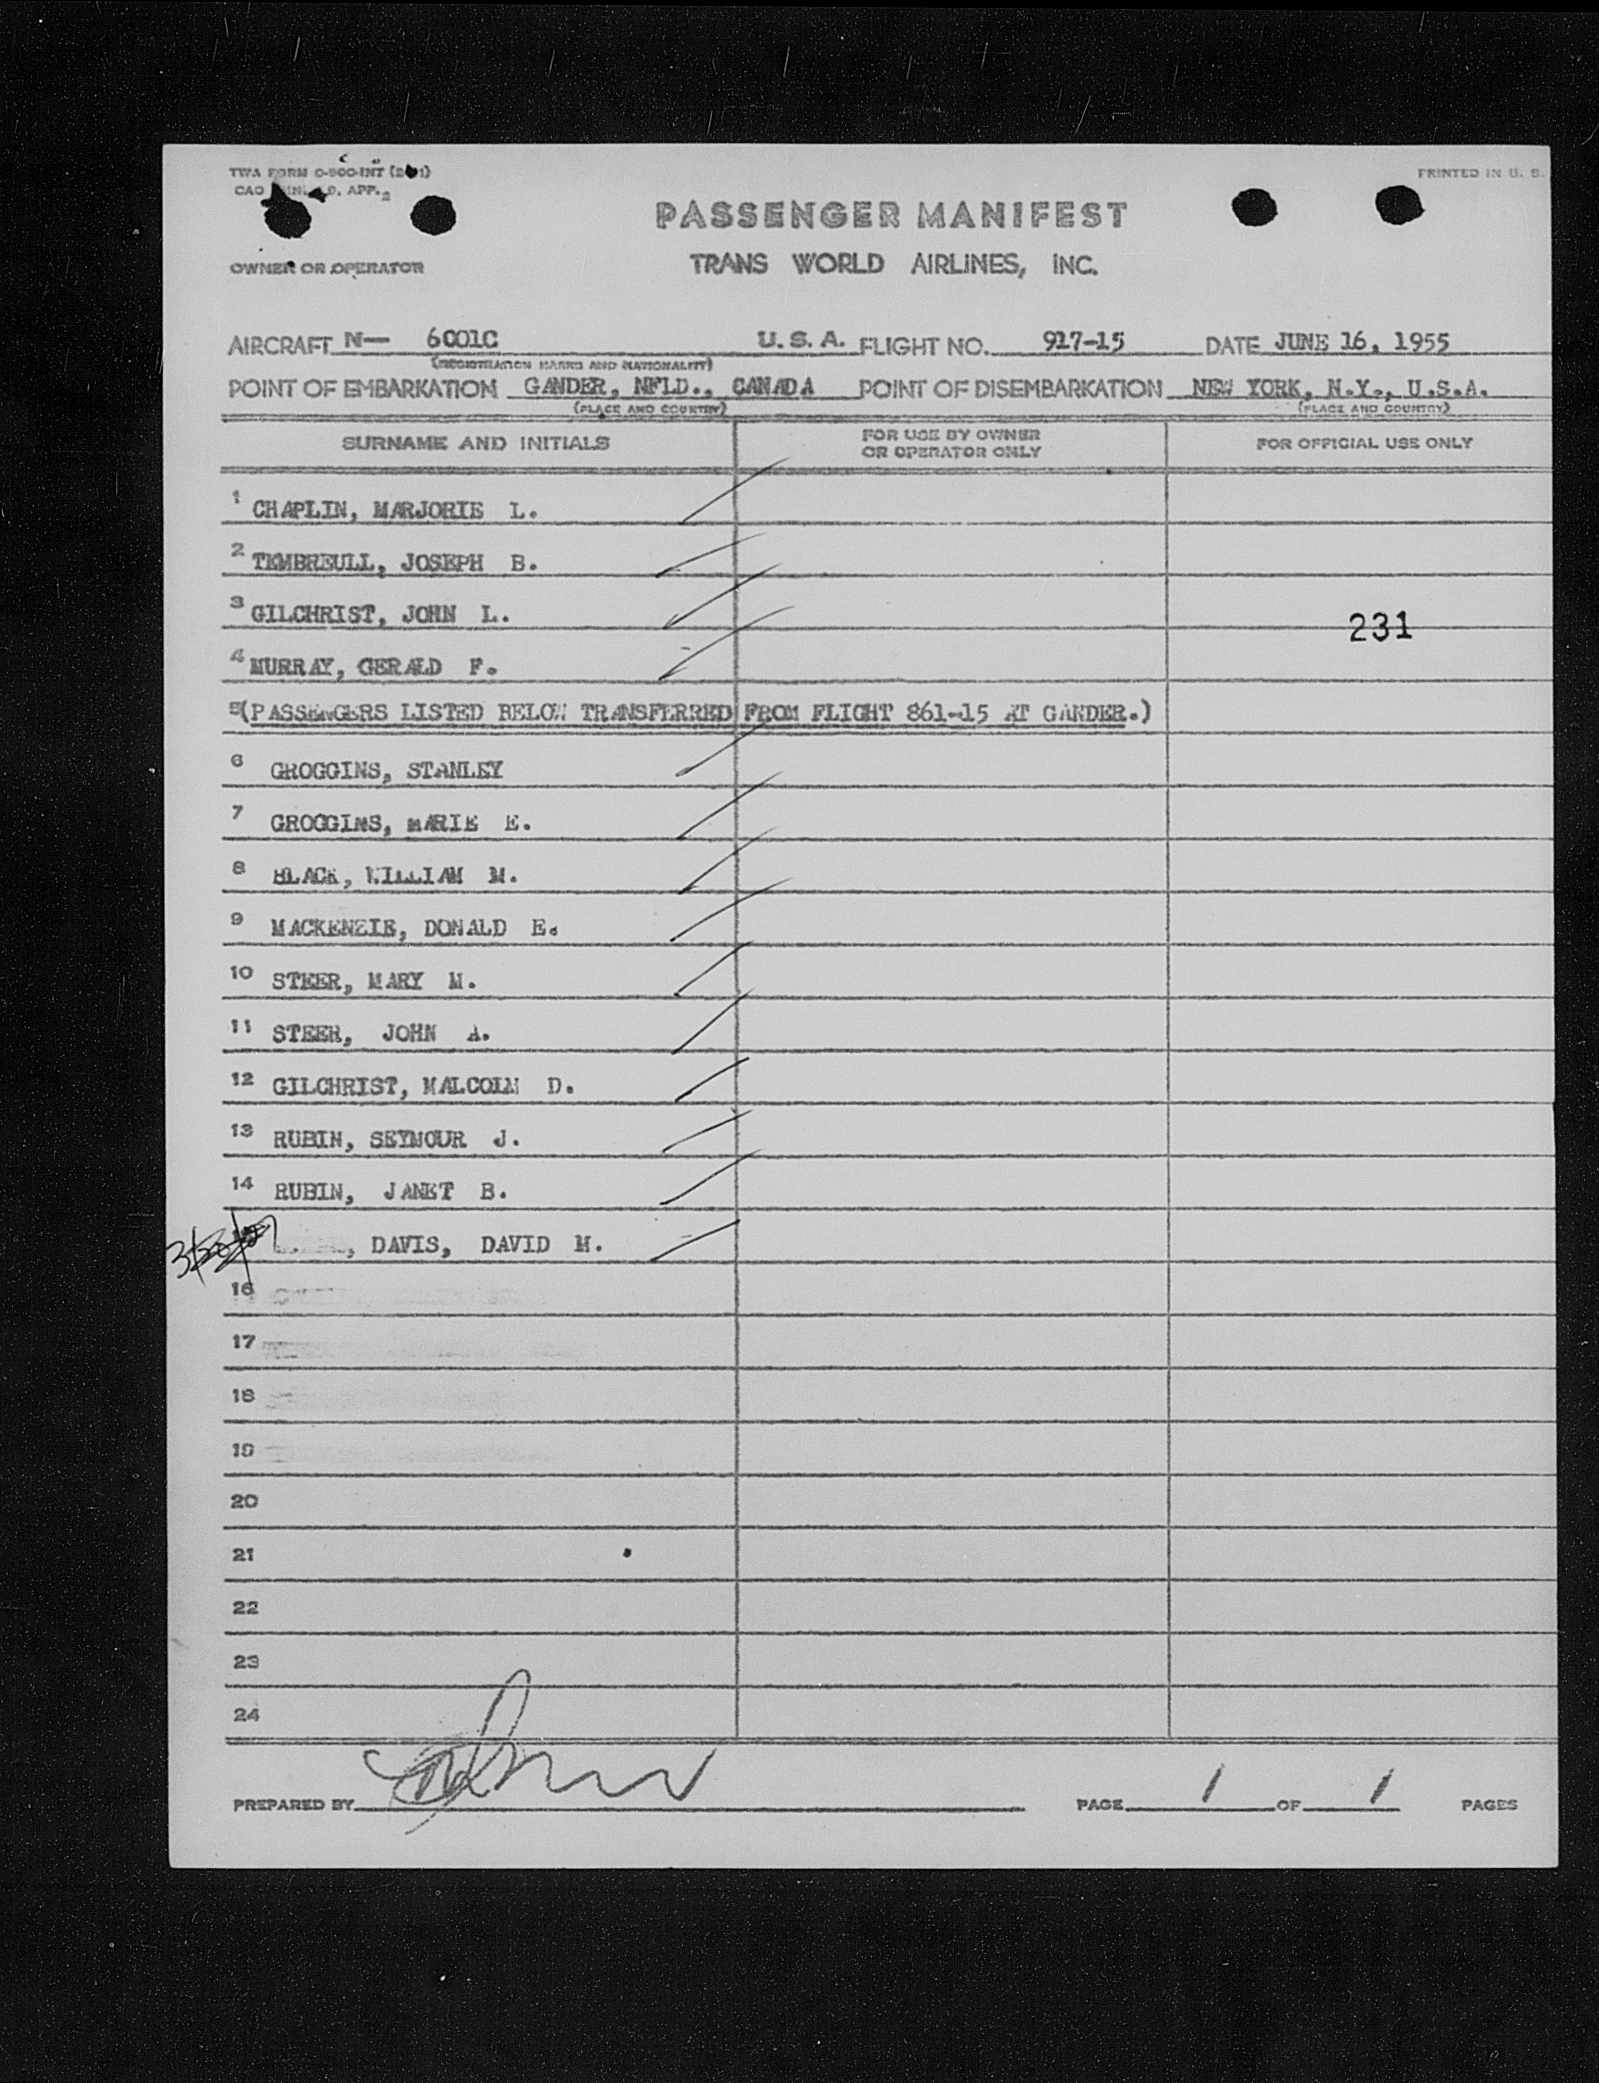 TWA FORM
PRINTED IN U. S.
PASSENGER MANIFEST
OWNER OR OPERATOR TRANS WORLD AIRLINES, INC.
AIRCRAFT N— 6001C U. S. A. FLIGHT NO. 917-15 DATE JUNE 16, 1955
(REGISTRATION MARKS AND NATIONALITY)
POINT OF EMBARKATION GANDER, NFLD., CANADA POINT OF DISEMBARKATION NEW YORK, N.Y., U.S.A.
(PLACE AND COUNTRY) (PLACE AND COUNTRY)
SURNAME AND INITIALS FOR USE BY OWNER OR OPERATOR ONLY FOR OFFICIAL USE ONLY
1 CHAPLIN, MARJORIE L.
2 TEMBREULL, JOSEPH B.
3 GILCHRIST, JOHN L.
231
4 MURRAY, GERALD F.
5 (PASSENGERS LISTED BELOW TRANSFERRED FROM FLIGHT 861-15 AT GANDER.)
6 GROGGINS, STANLEY
7 GROGGINS, MARIE E.
8 BLACK, WILLIAM M.
9 MACKENZIE, DONALD E.
10 STEER, MARY M.
11 STEER, JOHN A.
12 GILCHRIST, MALCOLM D.
13 RUBIN, SEYMOUR J.
14 RUBIN, JANET B.
, DAVIS, DAVID M.
16
17
18
19
20
21
22
23
24
PREPARED BY PAGE 1 OF 1 PAGES